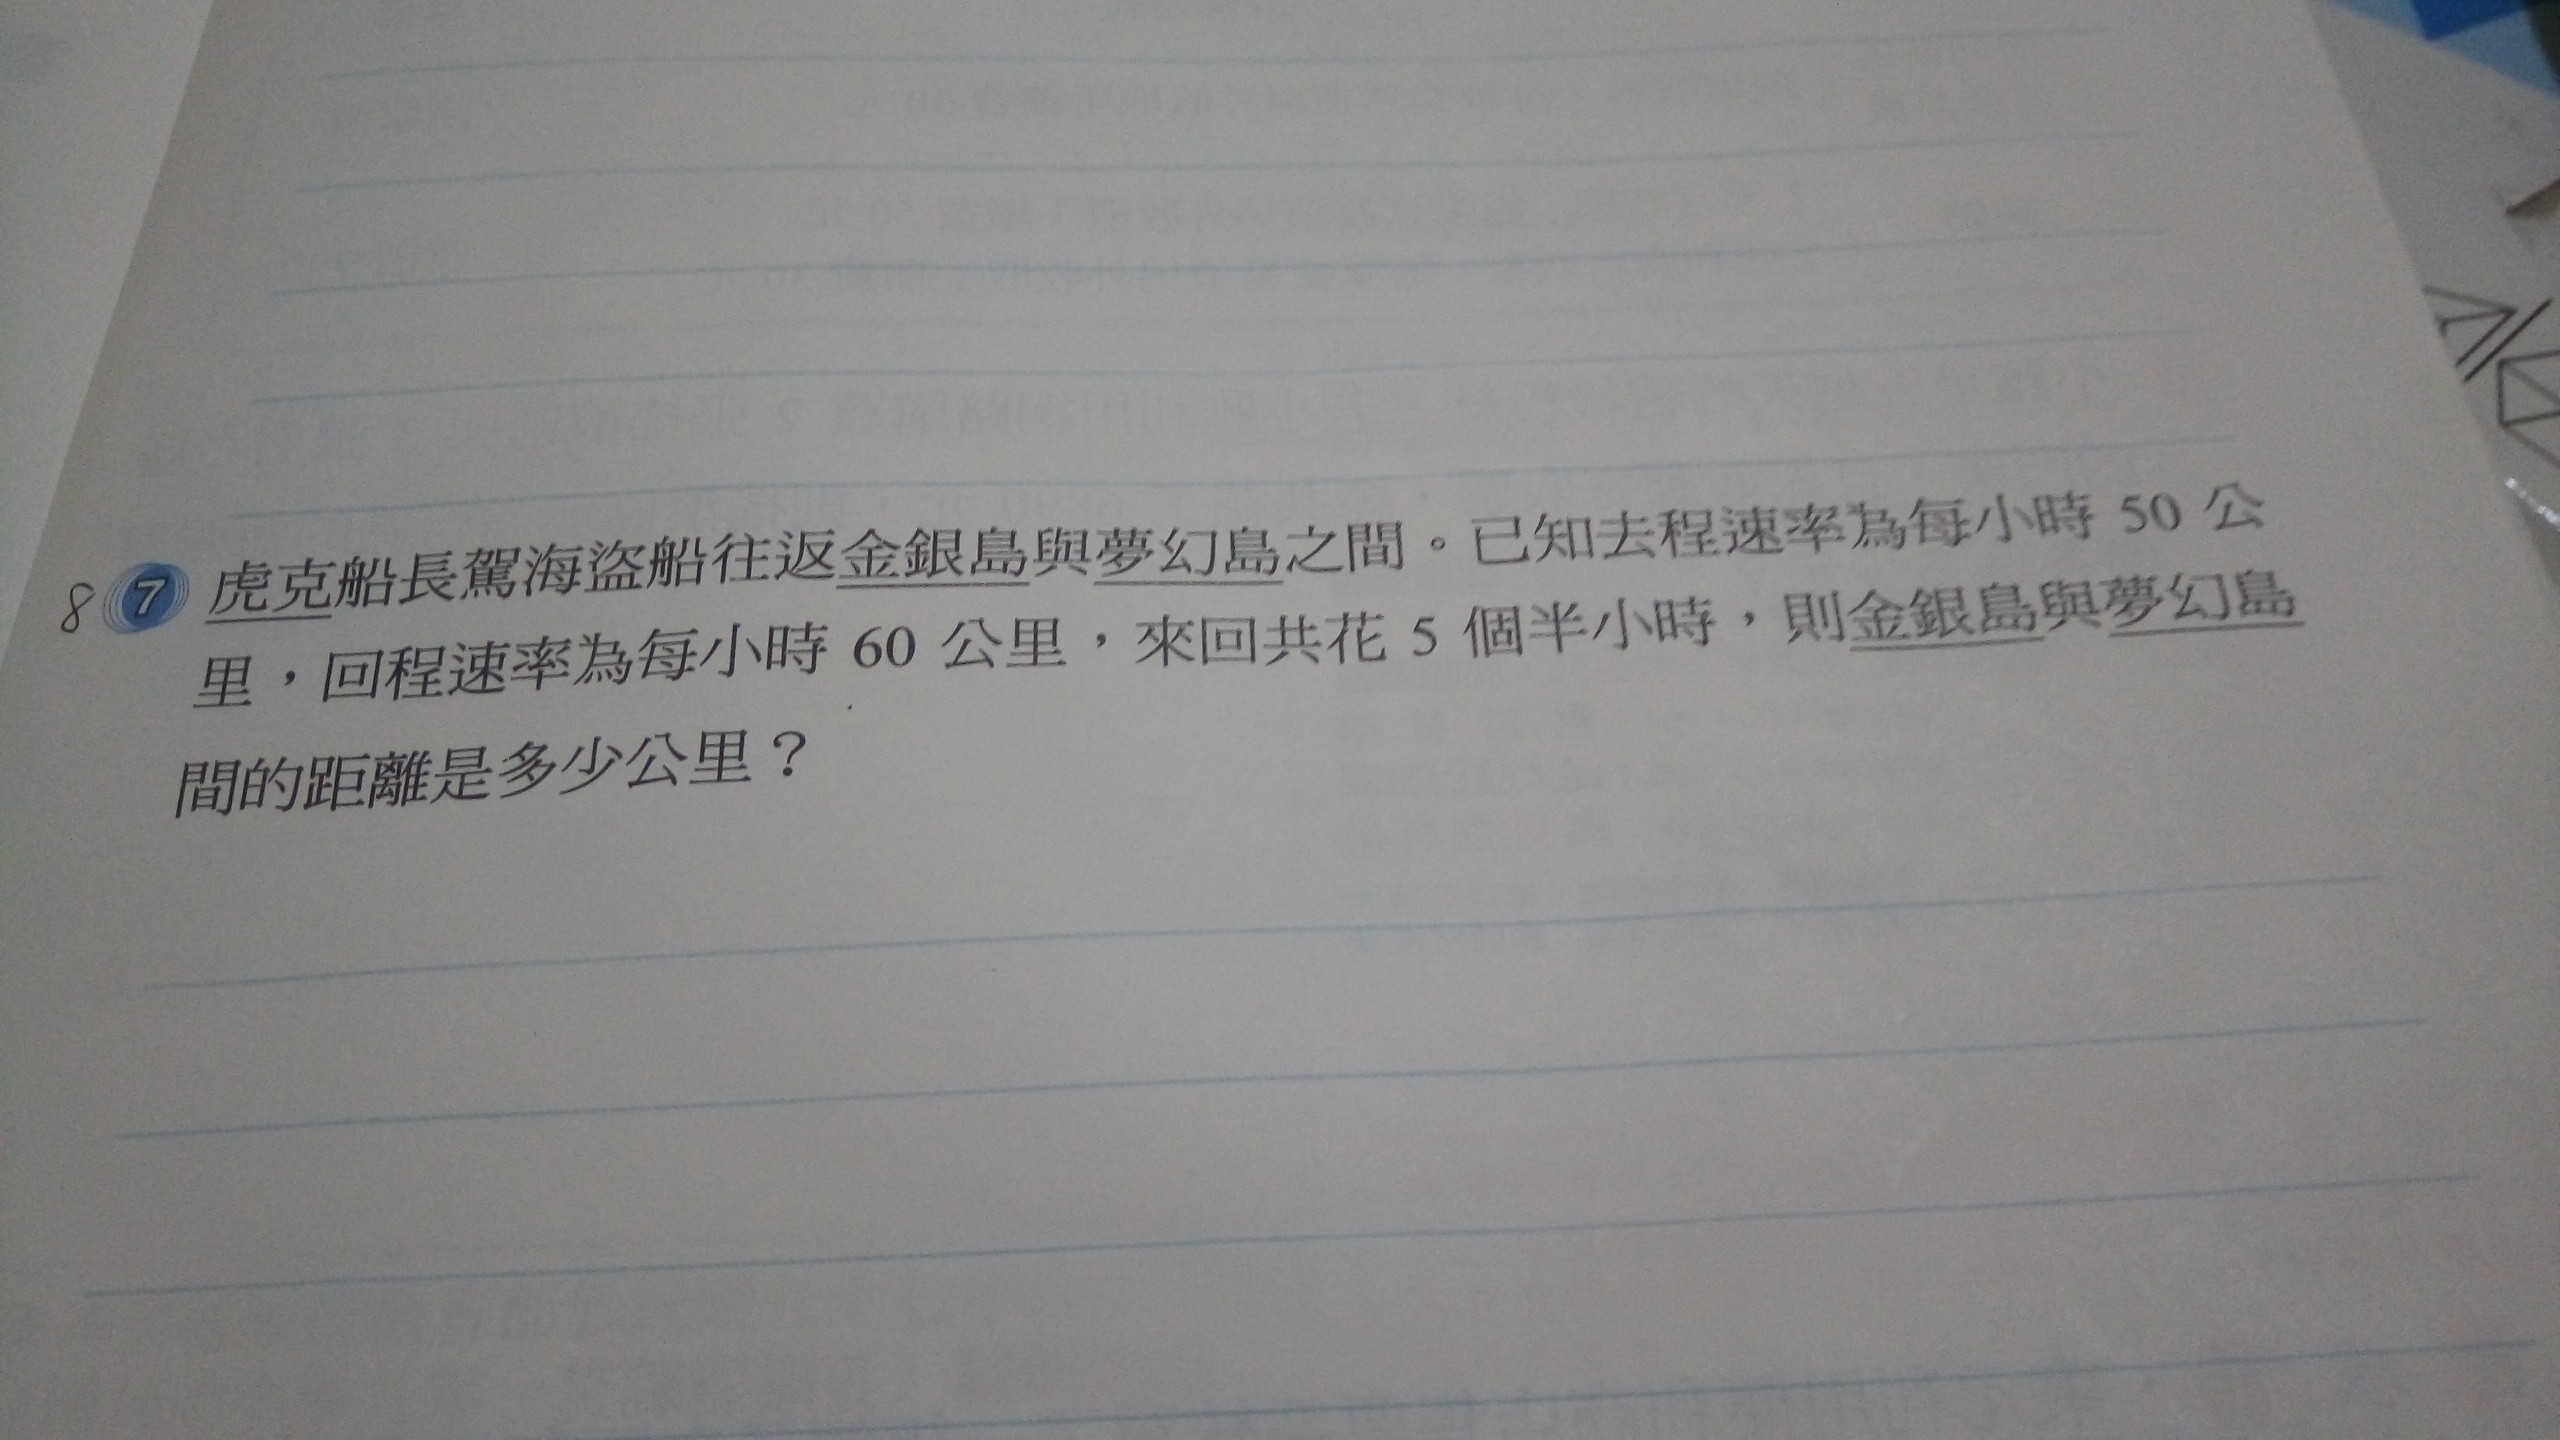 8 7 虎克船長駕海盜船往返金銀島與夢幻島之間。已知去程速率為每小時 50 公
里，回程速率為每小時 60 公里，來回共花 5 個半小時，則金銀島與夢幻島
間的距離是多少公里？